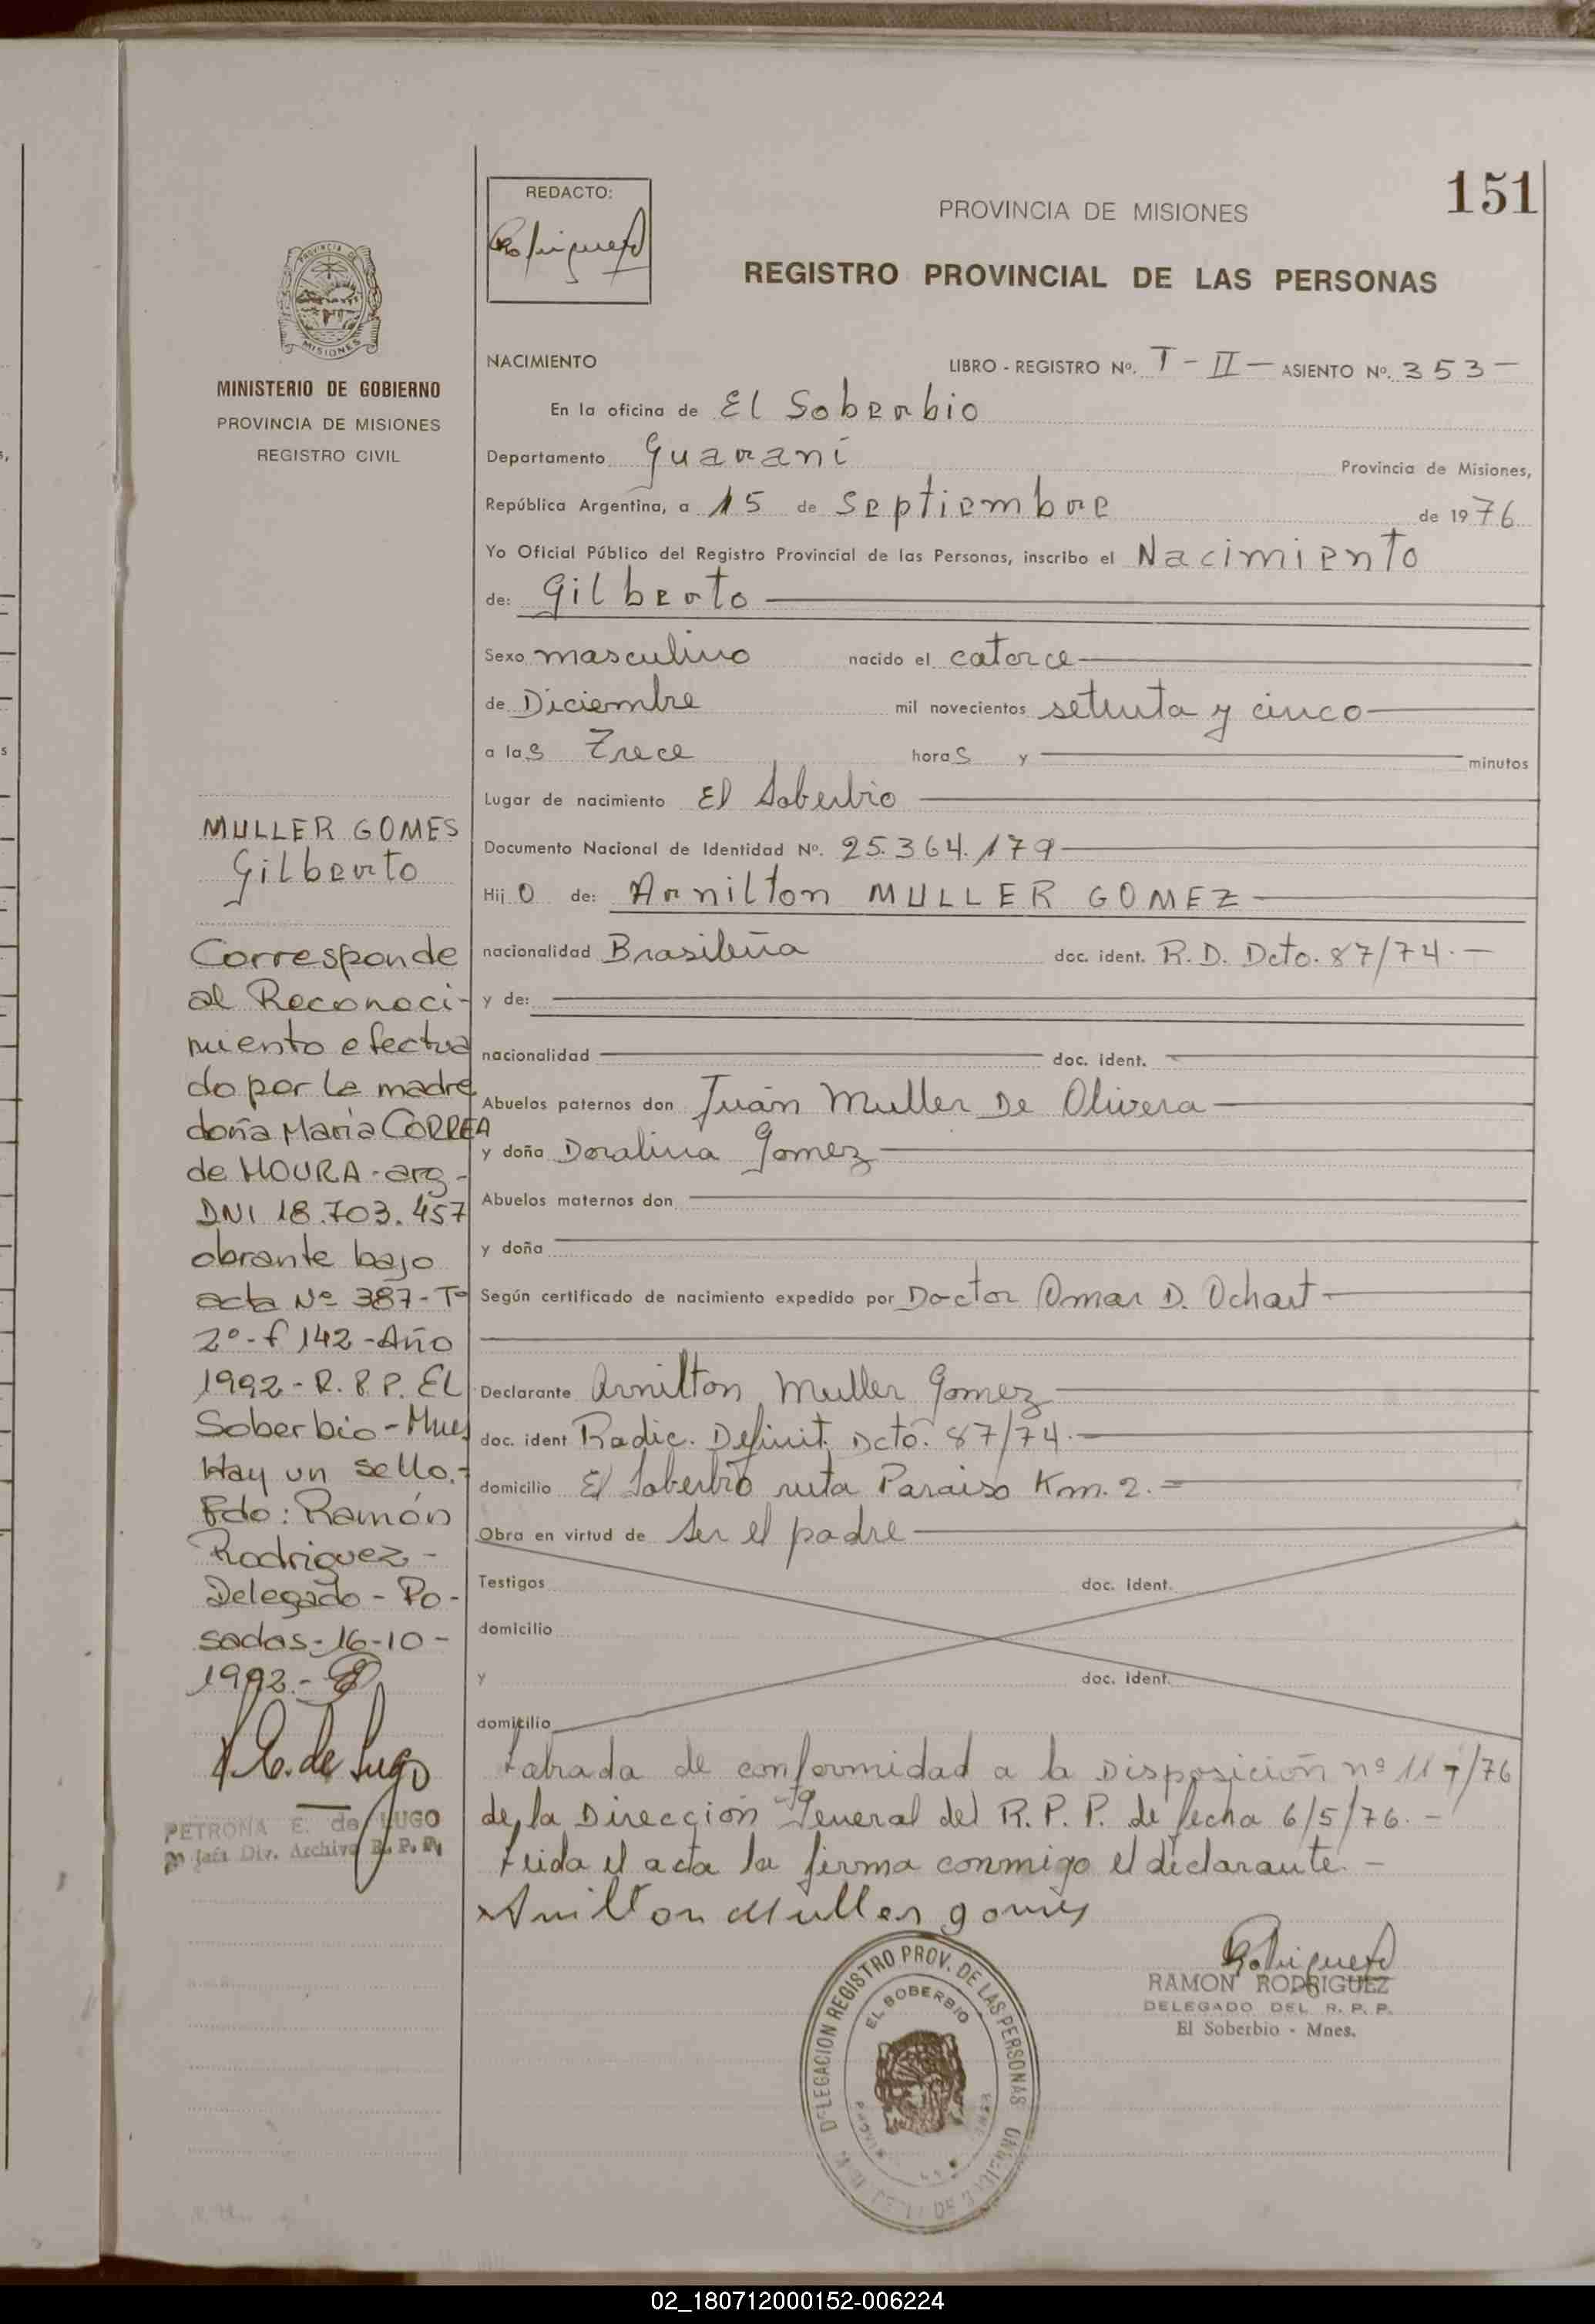 151
REDACTO:
PROVINCIA DE MISIONES
REGISTRO PROVINCIAL DE LAS PERSONAS
PROVINCIA DE
MISIONES
MINISTERIO DE GOBIERNO
PROVINCIA DE MISIONES
REGISTRO CIVIL
NACIMIENTO LIBRO - REGISTRO Nº. T - II - ASIENTO Nº. 353 -
En la oficina de El Soberbio
Departamento Guaraní Provincia de Misiones,
República Argentina, a 15 de Septiembre de 1976
Yo Oficial Público del Registro Provincial de las Personas, inscribo el Nacimiento
de: Gilberto
Sexo masculino nacido el catorce
de Diciembre mil novecientos setenta y cinco
a las Trece horas y minutos
Lugar de nacimiento El Soberbio
Documento Nacional de Identidad Nº. 25.364.179
Hijo de: Arnilton MULLER GOMEZ
nacionalidad Brasileña doc. ident. R.D. Dcto. 87/74.-
y de:
nacionalidad doc. ident.
Abuelos paternos don Juan Muller De Olivera
y doña Doralina Gomez
Abuelos maternos don
y doña
Según certificado de nacimiento expedido por Doctor Omar D. Ochart
Declarante Arnilton Muller Gomez
doc. ident Radic. Definit. Dcto. 87/74.-
domicilio El Soberbio ruta Paraiso Km. 2.=
Obra en virtud de ser el padre
Testigos doc. ident.
domicilio
y doc. ident.
domicilio
Labrada de conformidad a la Disposición nº 117/76
de la Dirección General del R.P.P. de fecha 6/5/76.-
Leida el acta la firma conmigo el declarante.-
Arnilton Muller gomes
RAMON RODRIGUEZ
DELEGADO DEL R. P. P.
El Soberbio - Mnes.
DELEGACION REGISTRO PROV. DE LAS PERSONAS
EL SOBERBIO
MULLER GOMES
Gilberto
Corresponde
al Reconoci-
miento efectua
do por la madre
doña María CORREA
de MOURA - arg -
DNI 18.703.457
obrante bajo
acta Nº 387-Tº
2º-f 142-Año
1992-R.P.P. El
Soberbio-Mnes
Hay un sello.-
Fdo: Ramón
Rodriguez-
Delegado-Po-
sadas-16-10-
1992.-
E. de Lugo
PETRONA E. de LUGO
Jefa Div. Archivo R. P. P.
02_180712000152-006224